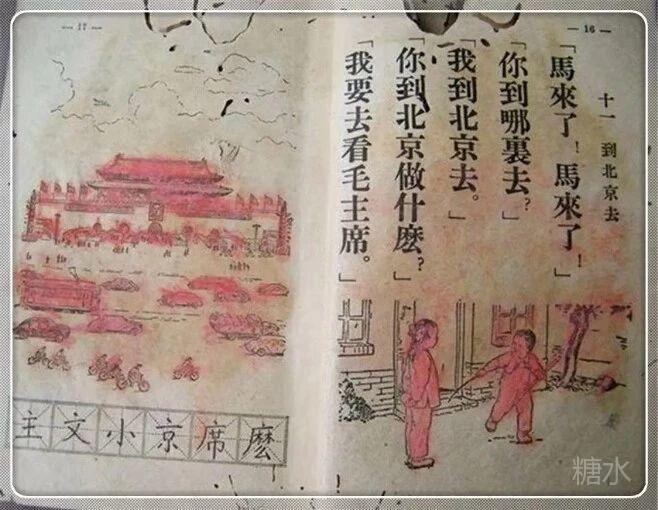 —16—
十一 到北京去
「馬來了！馬來了！」
「你到哪裏去？」
「我到北京去。」
「你到北京做什麽？」
「我要去看毛主席。」
—17—
主文小京席麽
糖水